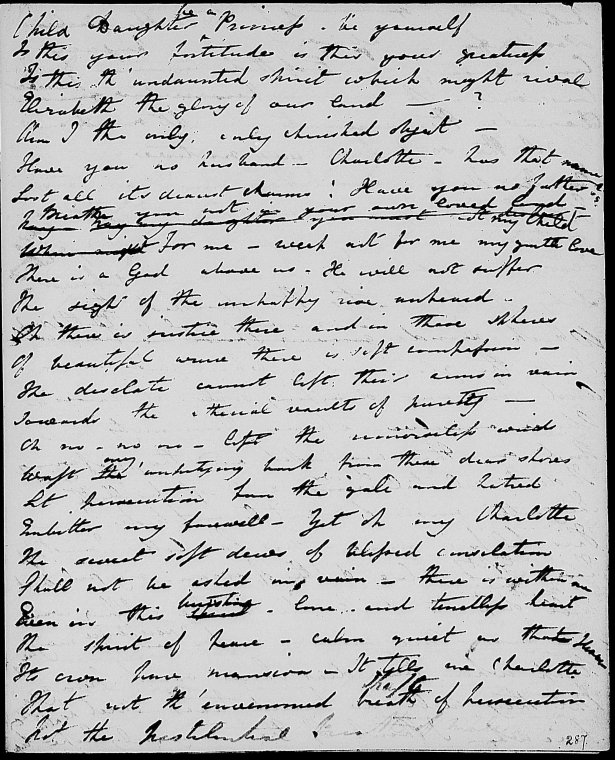 Child Daughter be a Princess - be yourself
Is this your fortitude is this your greatness
Is this th' undaunted spirit which might rival
Elizabeth the glory of our land — ?
Am I the only, only cherished object —
Have you no husband - Charlotte - has that name
Lost all its dearest charms! Have you no father
Breathe you not in your own loved land
my Child
For me - weep not for me my gentle love
There is a God above us - He will not suffer
The sighs of the unhappy rise unheard -
Oh there is justice there and in those spheres
Of beautiful there is soft compassion -
The desolate cannot lift their arms in vain
Towards the etherial vaults of purity —
Oh no - no no - let the remorseless wind
Waft my unhappy bark from these dear shores
Let persecution fan the gale and hatred
Embitter my farewell - Yet oh my Charlotte
The sweet soft dews of blessed consolation
Shall not be asked in vain - there is within me
Even in this bursting - lone and tenderless heart
The spirit of peace - calm quiet as
Its own pure mansion - It tells me Charlotte
That not th' envenomed breath of persecution
Not the pestilential
287